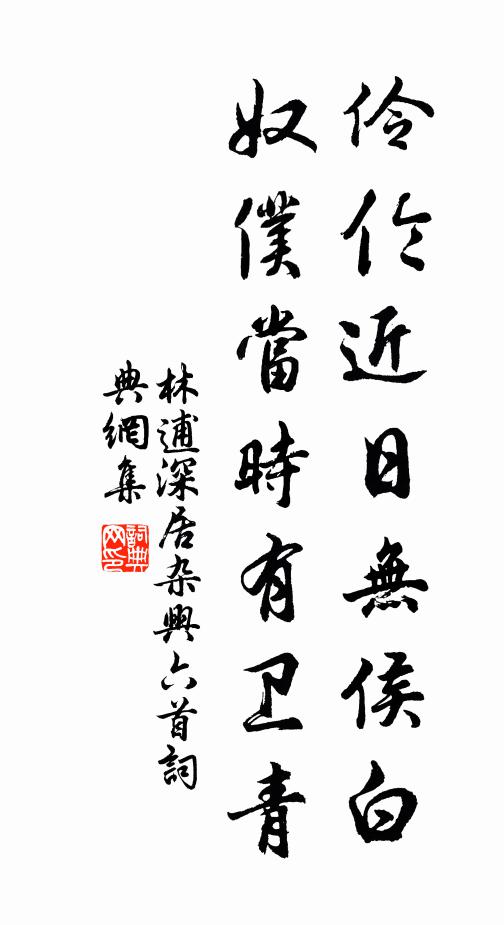 伶伦近日無侯白
奴僕當時有卫青
林逋深居杂興六首詞
典網集
詞典
网印